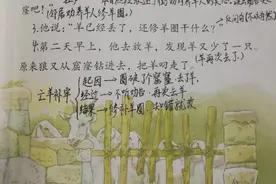 座吧！"(邻居劝养羊人修羊圈。)
3.他说："羊已经丢了，还修羊圈干什么？"
4.第二天早上，他去放羊，发现羊又少了一只。
原来狼又从窟窿钻进去，把羊叼走了。(羊再次丢了)
亡羊补牢
起因→圈破了窟窿 丢羊
经过→不听劝告 再次丢羊
结果→修补羊圈